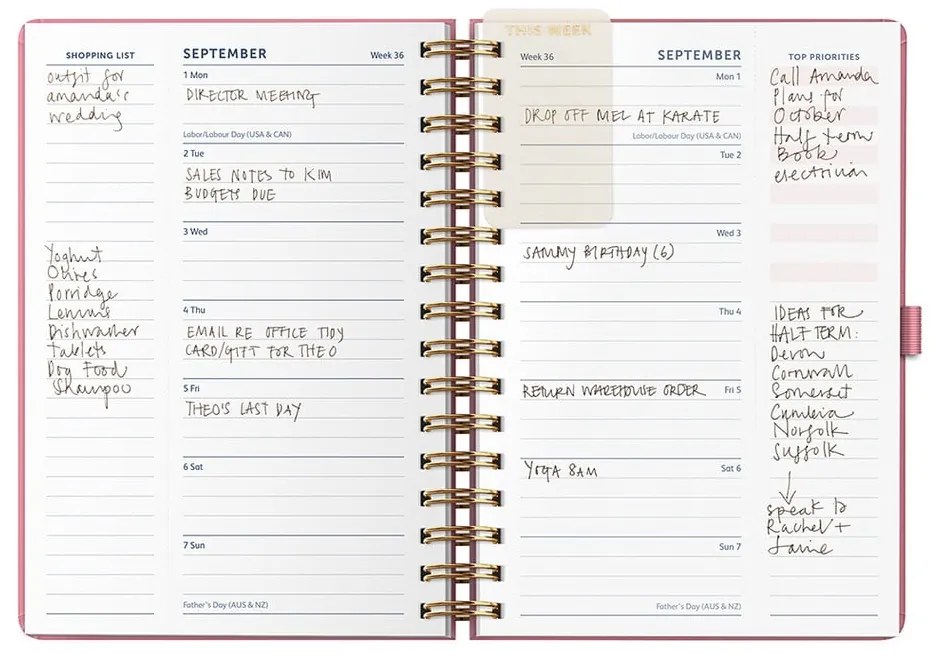 SHOPPING LIST
outfit for
amanda's
wedding
Yoghurt
Olives
Porridge
Lemons
Dishwasher
tablets
Dog Food
Shampoo
SEPTEMBER Week 36
1 Mon
DIRECTOR MEETING
Labor/Labour Day (USA & CAN)
2 Tue
SALES NOTES TO KIM
BUDGETS DUE
3 Wed
4 Thu
EMAIL RE OFFICE TIDY
CARD/GIFT FOR THEO
5 Fri
THEO'S LAST DAY
6 Sat
7 Sun
Father's Day (AUS & NZ)
THIS WEEK
Week 36 SEPTEMBER
Mon 1
DROP OFF MEL AT KARATE
Labor/Labour Day (USA & CAN)
Tue 2
Wed 3
SAMMY BIRTHDAY (6)
Thu 4
RETURN WAREHOUSE ORDER Fri 5
YOGA 8AM Sat 6
Sun 7
Father's Day (AUS & NZ)
TOP PRIORITIES
Call Amanda
Plans for
October
Half term
Book
electrician
IDEAS FOR
HALF TERM:
Devon
Cornwall
Somerset
Cumbria
Norfolk
Suffolk
speak to
Rachel +